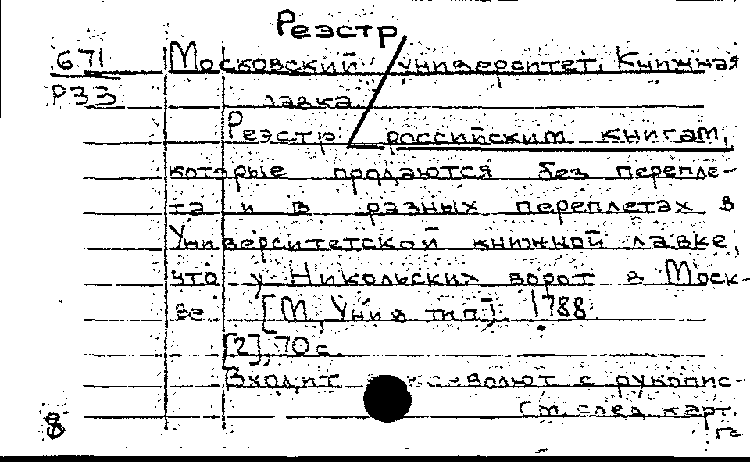 Реэстр
671 Московский университет. Книжная
Р33 лавка
Реэстр российским книгам,
которые продаются без перепле-
та и в разных переплетах в
Университетской книжной лавке,
что у Никольских ворот в Моск-
ве. [М., Унив. тип.]. 1788.
[2], 70 с.
Входит в конволют с рукопис-
См. след. карт.
8